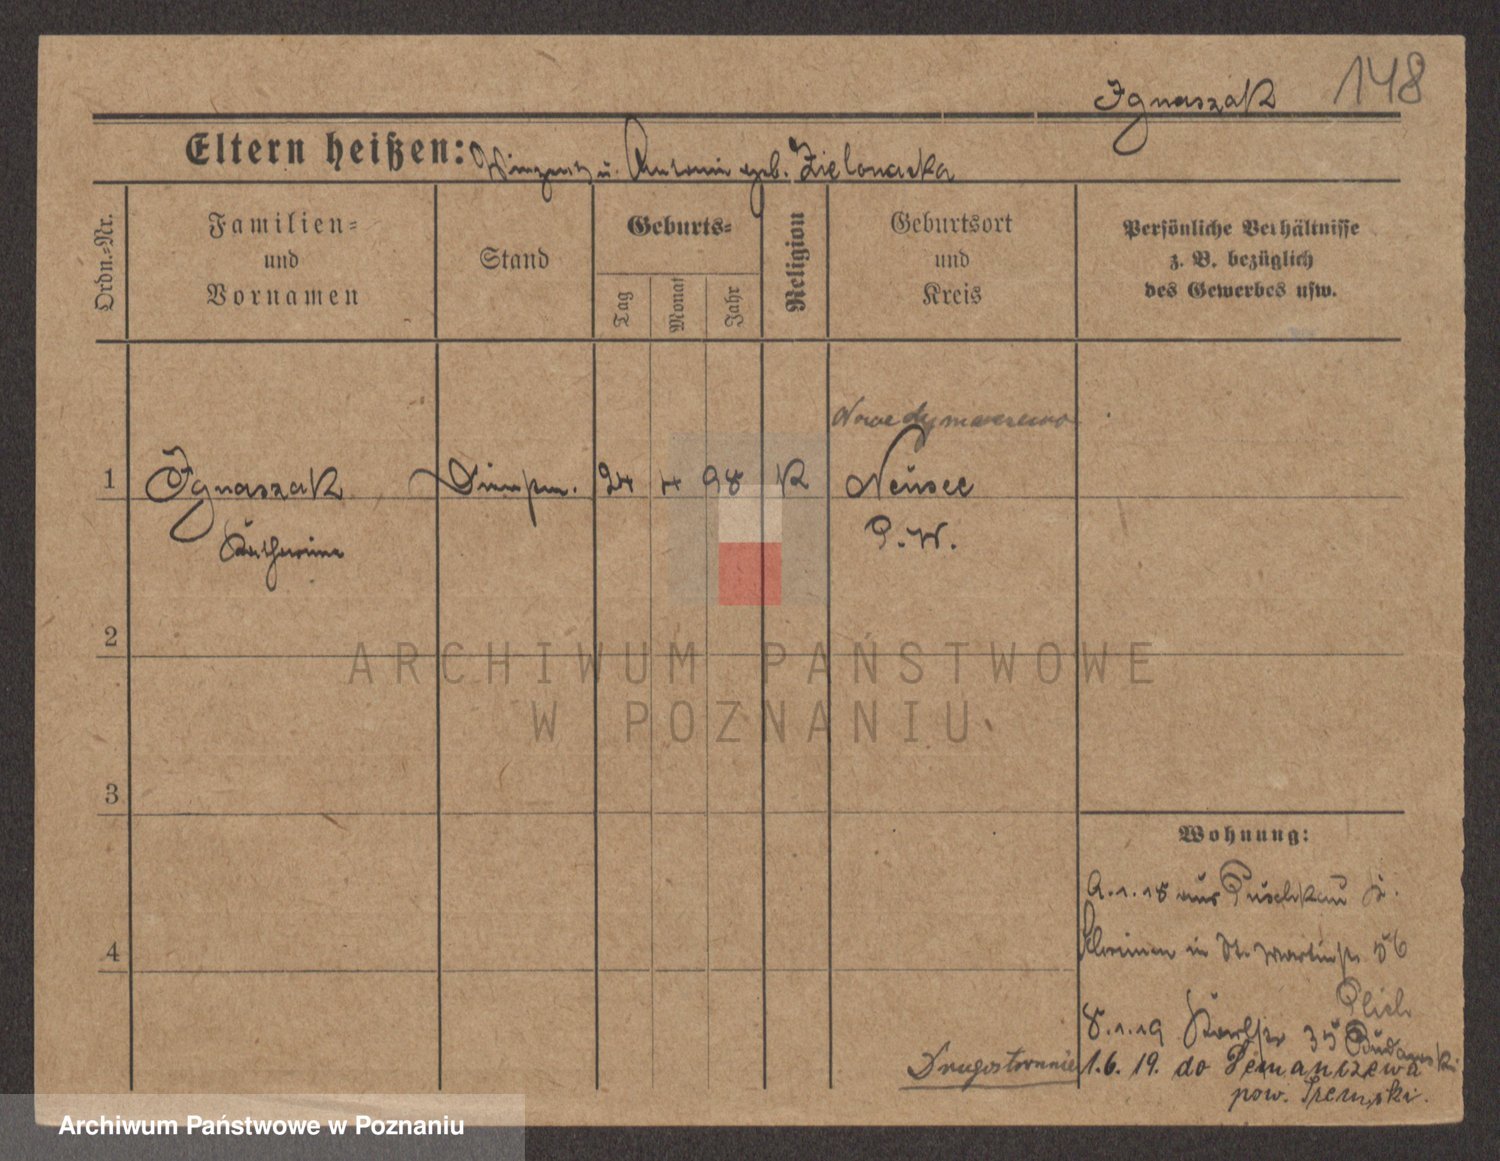 148
Ignaszak
Eltern heißen: Winzent u. Antonie geb. Zielonacka
Ordn.-Nr.
Familien-
und
Vornamen
Stand
Geburts-
Tag
Monat
Jahr
Religion
Geburtsort
und
Kreis
Persönliche Verhältnisse
z. B. bezüglich
des Gewerbes usw.
1
Ignaszak
Katharina
24
4
98
K
Neusee
P.W.
2
3
4
Wohnung:
9.1.18 aus Puschkau K.
in St. Martinstr 56
8.1.19 35
1.6.19. do
pow. Śremski.
Drugostronnie
ARCHIWUM PAŃSTWOWE
W POZNANIU
Archiwum Państwowe w Poznaniu